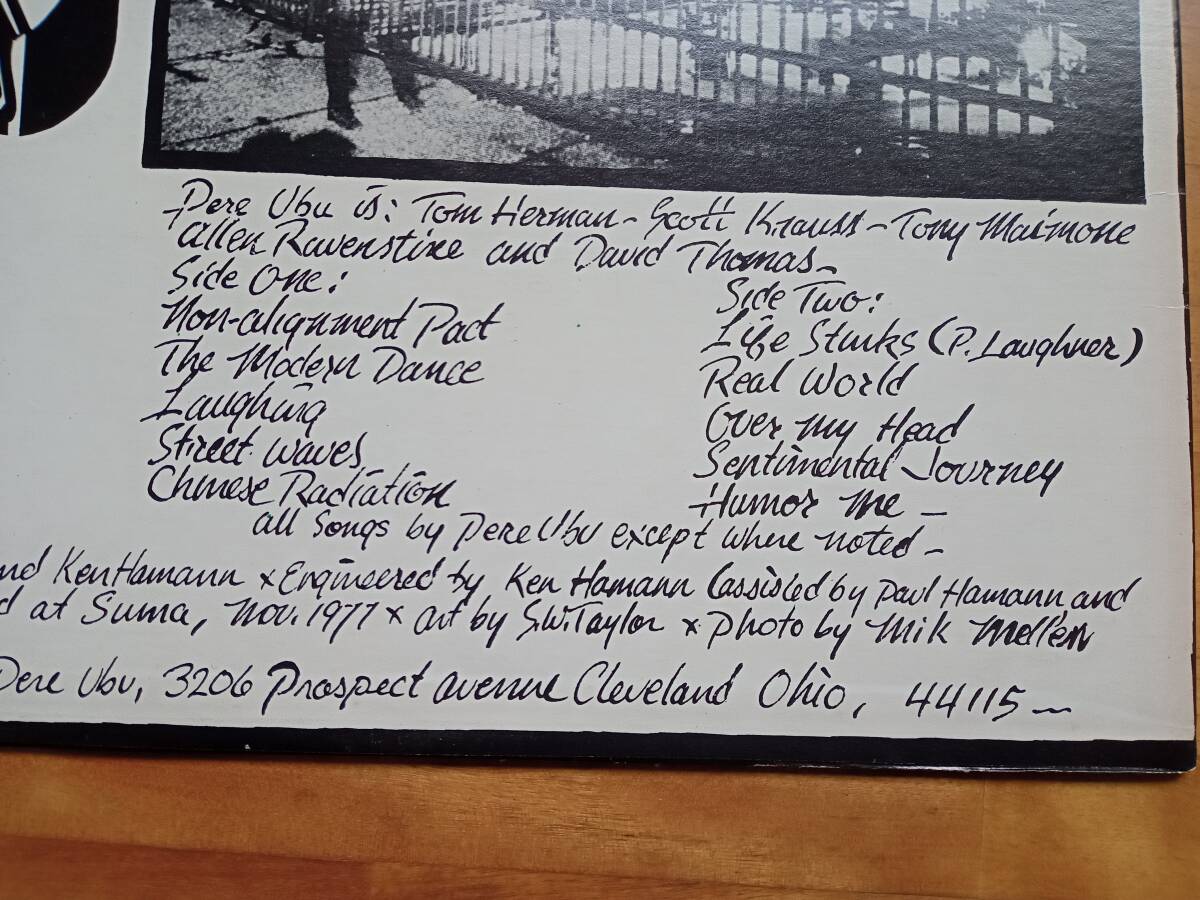 Pere Ubu is: Tom Herman - Scott Krauss - Tony Maimone
Allen Ravenstine and David Thomas -
Side One:
Non-alignment Pact
The Modern Dance
Laughing
Street Waves
Chinese Radiation
Side Two:
Life Stinks (P. Laughner)
Real World
Over my Head
Sentimental Journey
Humor me -
all songs by Pere Ubu except where noted -
Ken Hamann x Engineered by Ken Hamann (assisted by Paul Hamann and
at Suma, Nov. 1977 x art by S.W. Taylor x photo by Mik Mellen
Pere Ubu, 3206 Prospect avenue Cleveland Ohio, 44115 -